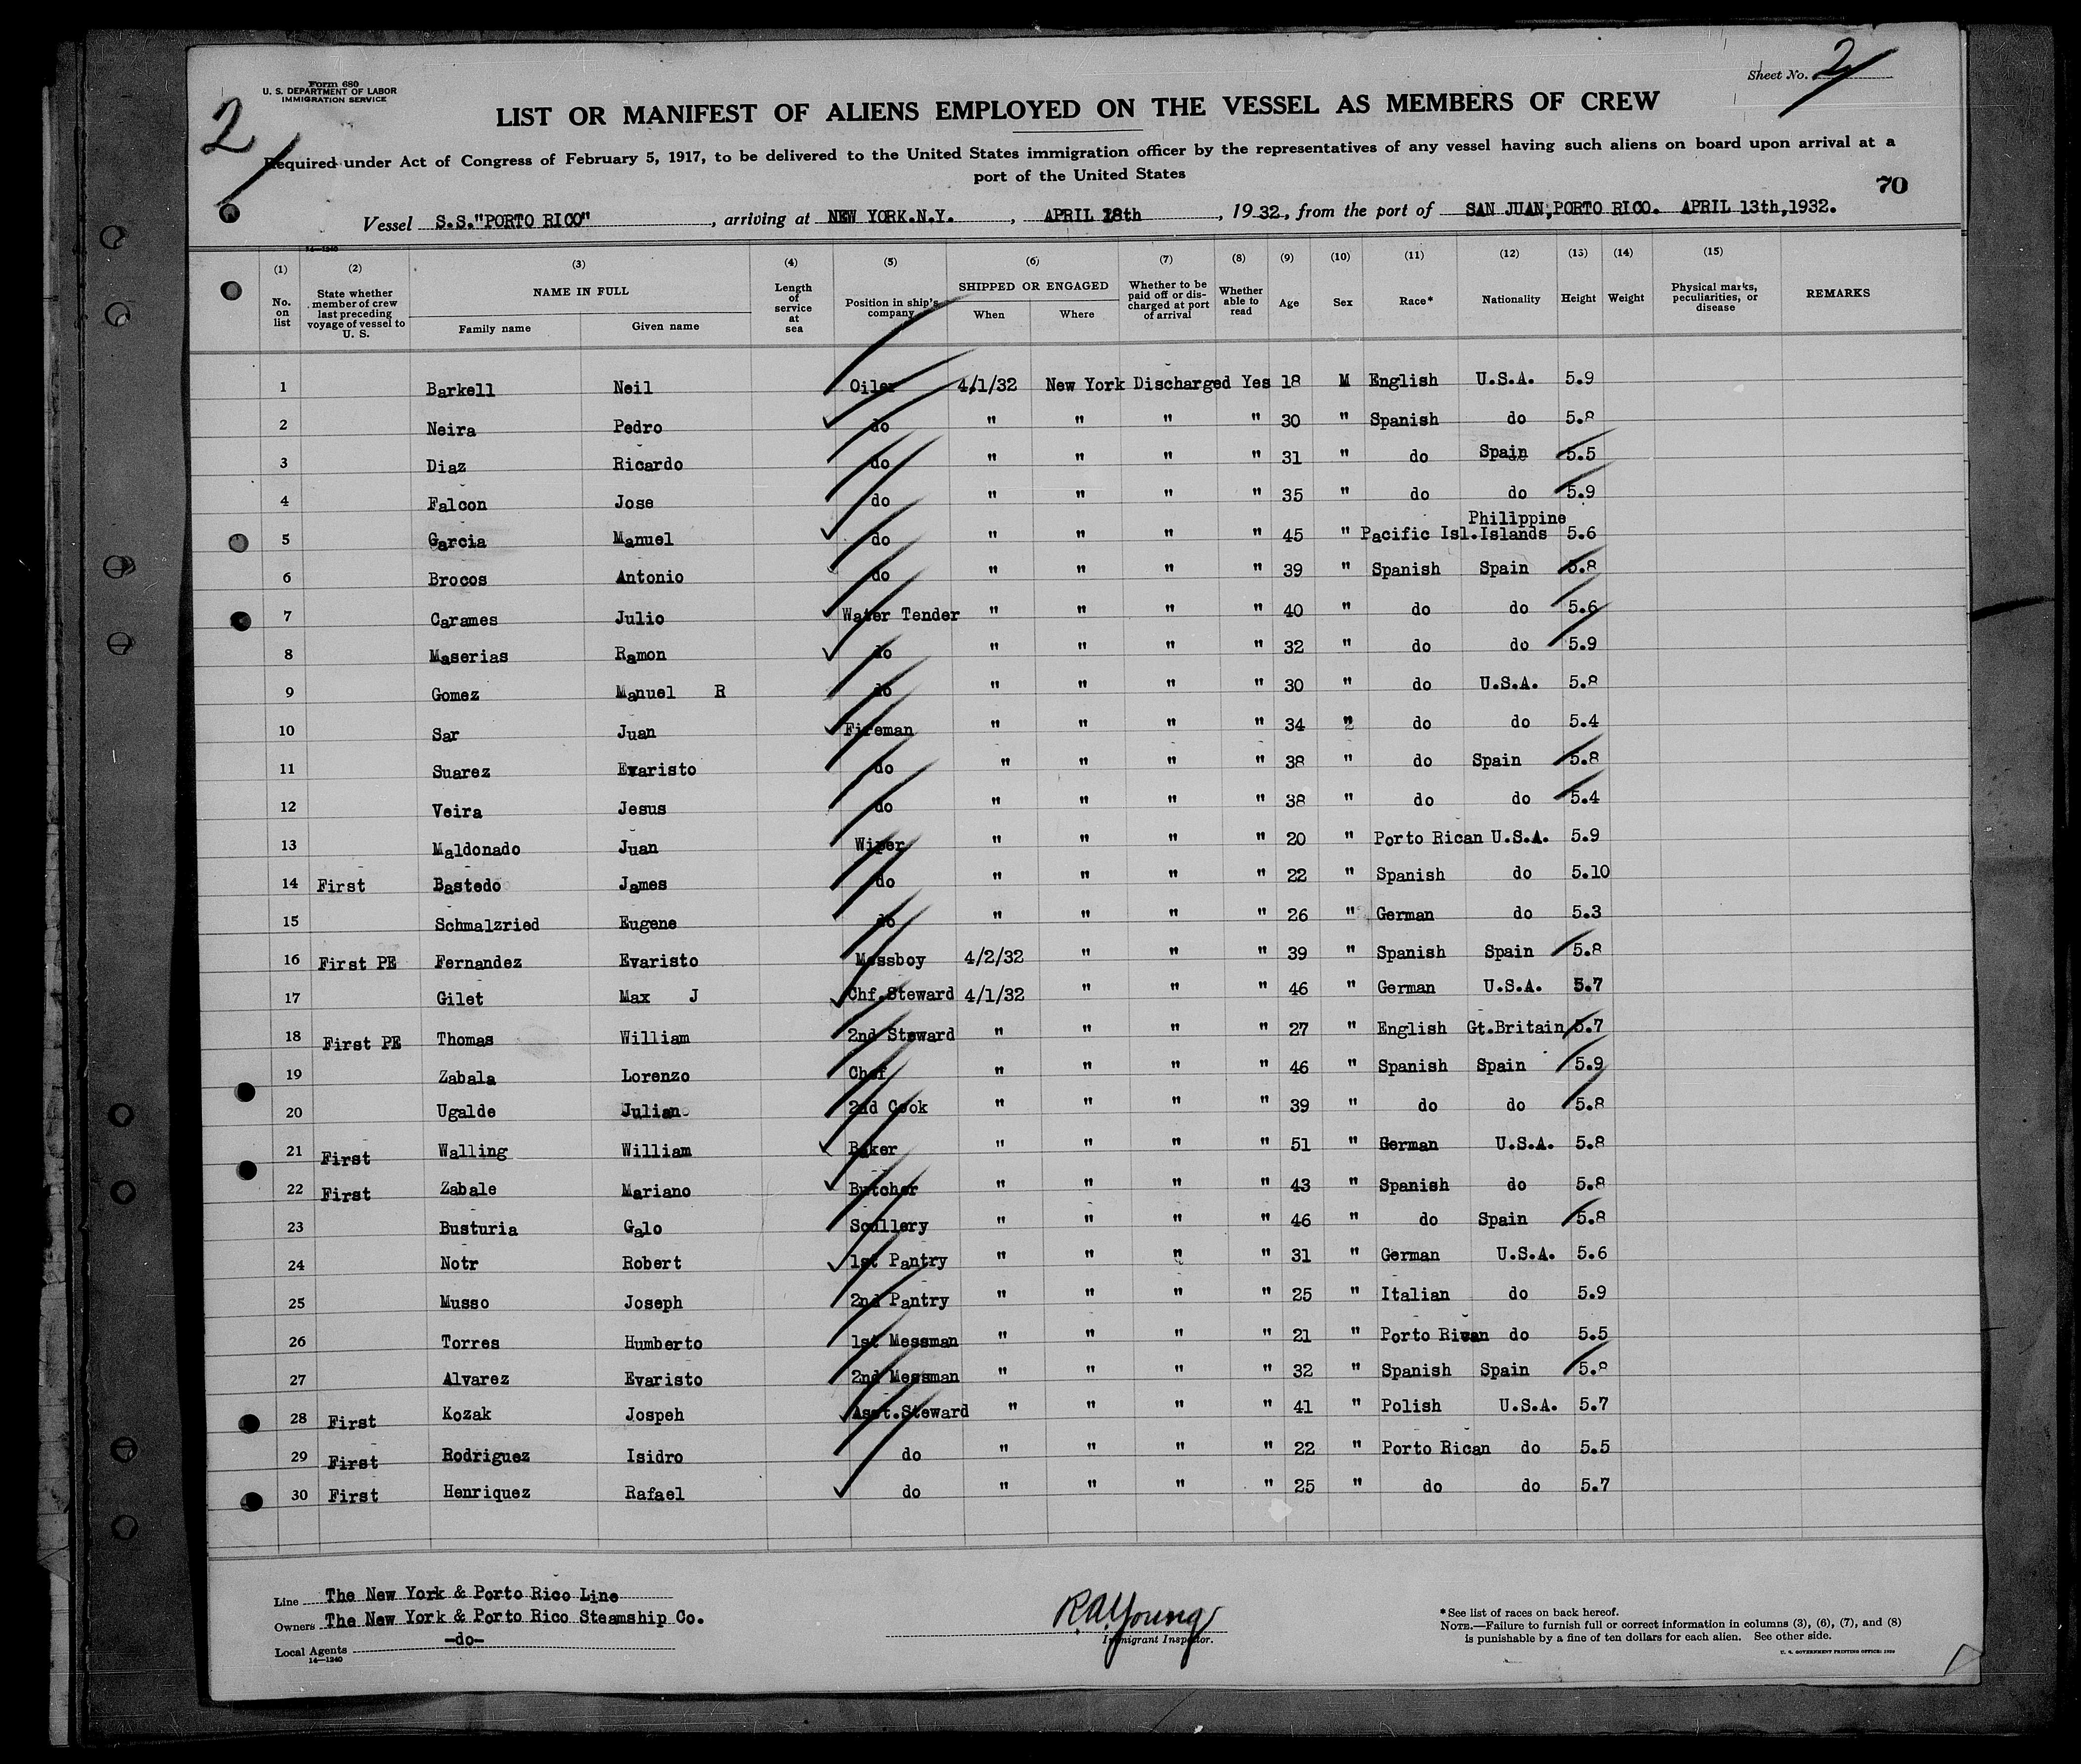 Form 680
U. S. DEPARTMENT OF LABOR
IMMIGRATION SERVICE
Sheet No. 2
2
LIST OR MANIFEST OF ALIENS EMPLOYED ON THE VESSEL AS MEMBERS OF CREW
Required under Act of Congress of February 5, 1917, to be delivered to the United States immigration officer by the representatives of any vessel having such aliens on board upon arrival at a
port of the United States
70
Vessel S.S."PORTO RICO", arriving at NEW YORK.N.Y., APRIL 18th, 1932, from the port of SAN JUAN,PORTO RICO. APRIL 13th,1932.
14—1240
(1) (2) (3) (4) (5) (6) (7) (8) (9) (10) (11) (12) (13) (14) (15)
No. on list | State whether member of crew last preceding voyage of vessel to U. S. | NAME IN FULL Family name Given name | Length of service at sea | Position in ship's company | SHIPPED OR ENGAGED When Where | Whether to be paid off or discharged at port of arrival | Whether able to read | Age | Sex | Race* | Nationality | Height | Weight | Physical marks, peculiarities, or disease | REMARKS
1 Barkell Neil Oiler 4/1/32 New York Discharged Yes 18 M English U.S.A. 5.9
2 Neira Pedro do " " " " 30 " Spanish do 5.8
3 Diaz Ricardo do " " " " 31 " do Spain 5.5
4 Falcon Jose do " " " " 35 " do do 5.9
5 Garcia Manuel do " " " " 45 " Pacific Isl. Philippine Islands 5.6
6 Brocos Antonio do " " " " 39 " Spanish Spain 5.8
7 Carames Julio Water Tender " " " " 40 " do do 5.6
8 Maserias Ramon do " " " " 32 " do do 5.9
9 Gomez Manuel R do " " " " 30 " do U.S.A. 5.8
10 Sar Juan Fireman " " " " 34 " do do 5.4
11 Suarez Evaristo do " " " " 38 " do Spain 5.8
12 Veira Jesus do " " " " 38 " do do 5.4
13 Maldonado Juan Wiper " " " " 20 " Porto Rican U.S.A. 5.9
14 First Bastedo James do " " " " 22 " Spanish do 5.10
15 Schmalzried Eugene do " " " " 26 " German do 5.3
16 First PE Fernandez Evaristo Messboy 4/2/32 " " " 39 " Spanish Spain 5.8
17 Gilet Max J Chf.Steward 4/1/32 " " " 46 " German U.S.A. 5.7
18 First PE Thomas William 2nd Steward " " " " 27 " English Gt.Britain 5.7
19 Zabala Lorenzo Chef " " " " 46 " Spanish Spain 5.9
20 Ugalde Julian 2nd Cook " " " " 39 " do do 5.8
21 First Walling William Baker " " " " 51 " German U.S.A. 5.8
22 First Zabale Mariano Butcher " " " " 43 " Spanish do 5.8
23 Busturia Galo Scullery " " " " 46 " do Spain 5.8
24 Notr Robert 1st Pantry " " " " 31 " German U.S.A. 5.6
25 Musso Joseph 2nd Pantry " " " " 25 " Italian do 5.9
26 Torres Humberto 1st Messman " " " " 21 " Porto Rican do 5.5
27 Alvarez Evaristo 2nd Messman " " " " 32 " Spanish Spain 5.8
28 First Kozak Jospeh Asst.Steward " " " " 41 " Polish U.S.A. 5.7
29 First Rodriguez Isidro do " " " " 22 " Porto Rican do 5.5
30 First Henriquez Rafael do " " " " 25 " do do 5.7
Line The New York & Porto Rico Line
Owners The New York & Porto Rico Steamship Co.
Local Agents -do-
14—1240
R.A.Young
Immigrant Inspector.
*See list of races on back hereof.
NOTE.—Failure to furnish full or correct information in columns (3), (6), (7), and (8)
is punishable by a fine of ten dollars for each alien. See other side.
U. S. GOVERNMENT PRINTING OFFICE: 1930